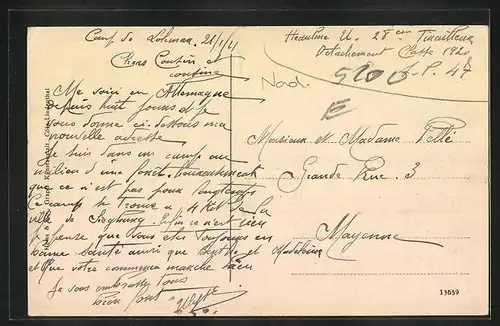 Camp de Lohmar 21/1/21
Chers Cousins et
cousine
Me voici en Allemagne
depuis huit jours et je
vous donne ci-dessous ma
nouvelle adresse
Je suis dans un camp au
milieu d'une forêt heureusement
que ce n'est pas pour longtemps
Ce camp se trouve à 4 Kil de la
ville de Siegburg. Enfin ce n'est rien
Je pense que vous êtes toujours en
bonne santé ainsi que Berthe et Madeleine
et que votre commerce marche bien
Je vous embrasse tous
bien fort
28em Tirailleurs
Détachement Classe 1920
S.P. 47
Nord
Monsieur et Madame Pellé
Grande Rue. 3
Mayenne
13659